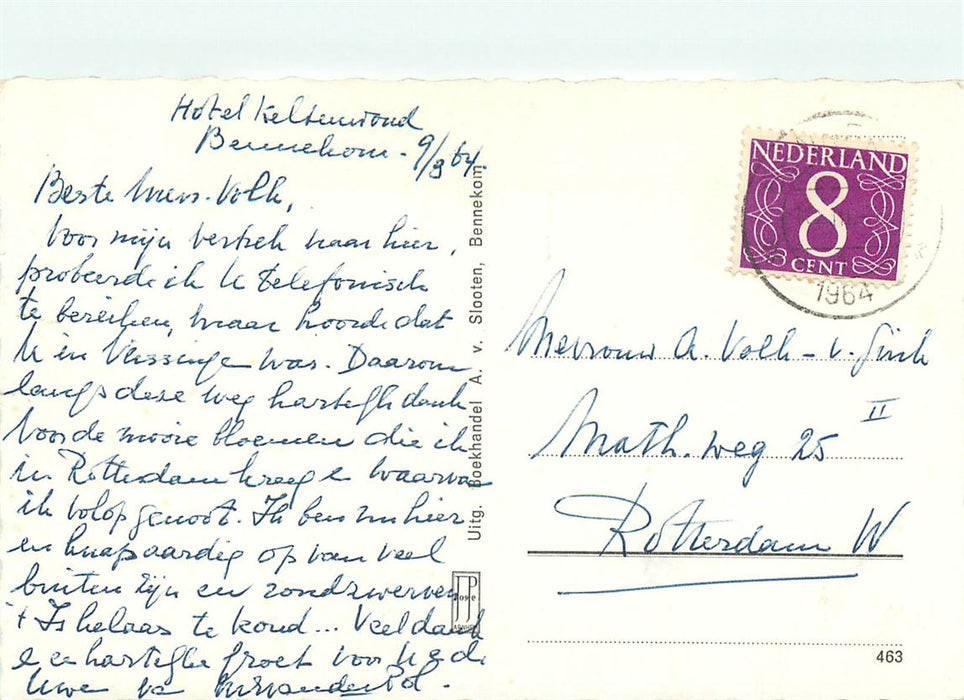 Hotel Keltenwoud
Bennekom - 9/3 64
Beste Mevr. Volk,
Voor mijn vertrek naar hier,
probeerde ik U telefonisch
te bereiken, maar hoorde dat
U in Vlissingen was. Daarom
langs deze weg hartelijk dank
voor de mooie bloemen die ik
in Rotterdam kreeg en waarvan
ik volop genoot. Ik ben nu hier
en knap aardig op van veel
buiten zijn en rondzwerven
't Is helaas te koud... Veel dank
en hartelijke groet voor U
Uwe
Uitg. Boekhandel A. v. Slooten, Bennekom
JP
NEDERLAND
8
CENT
1964
Mevrouw A. Volk - v.
Math. weg 25 II
Rotterdam W
463